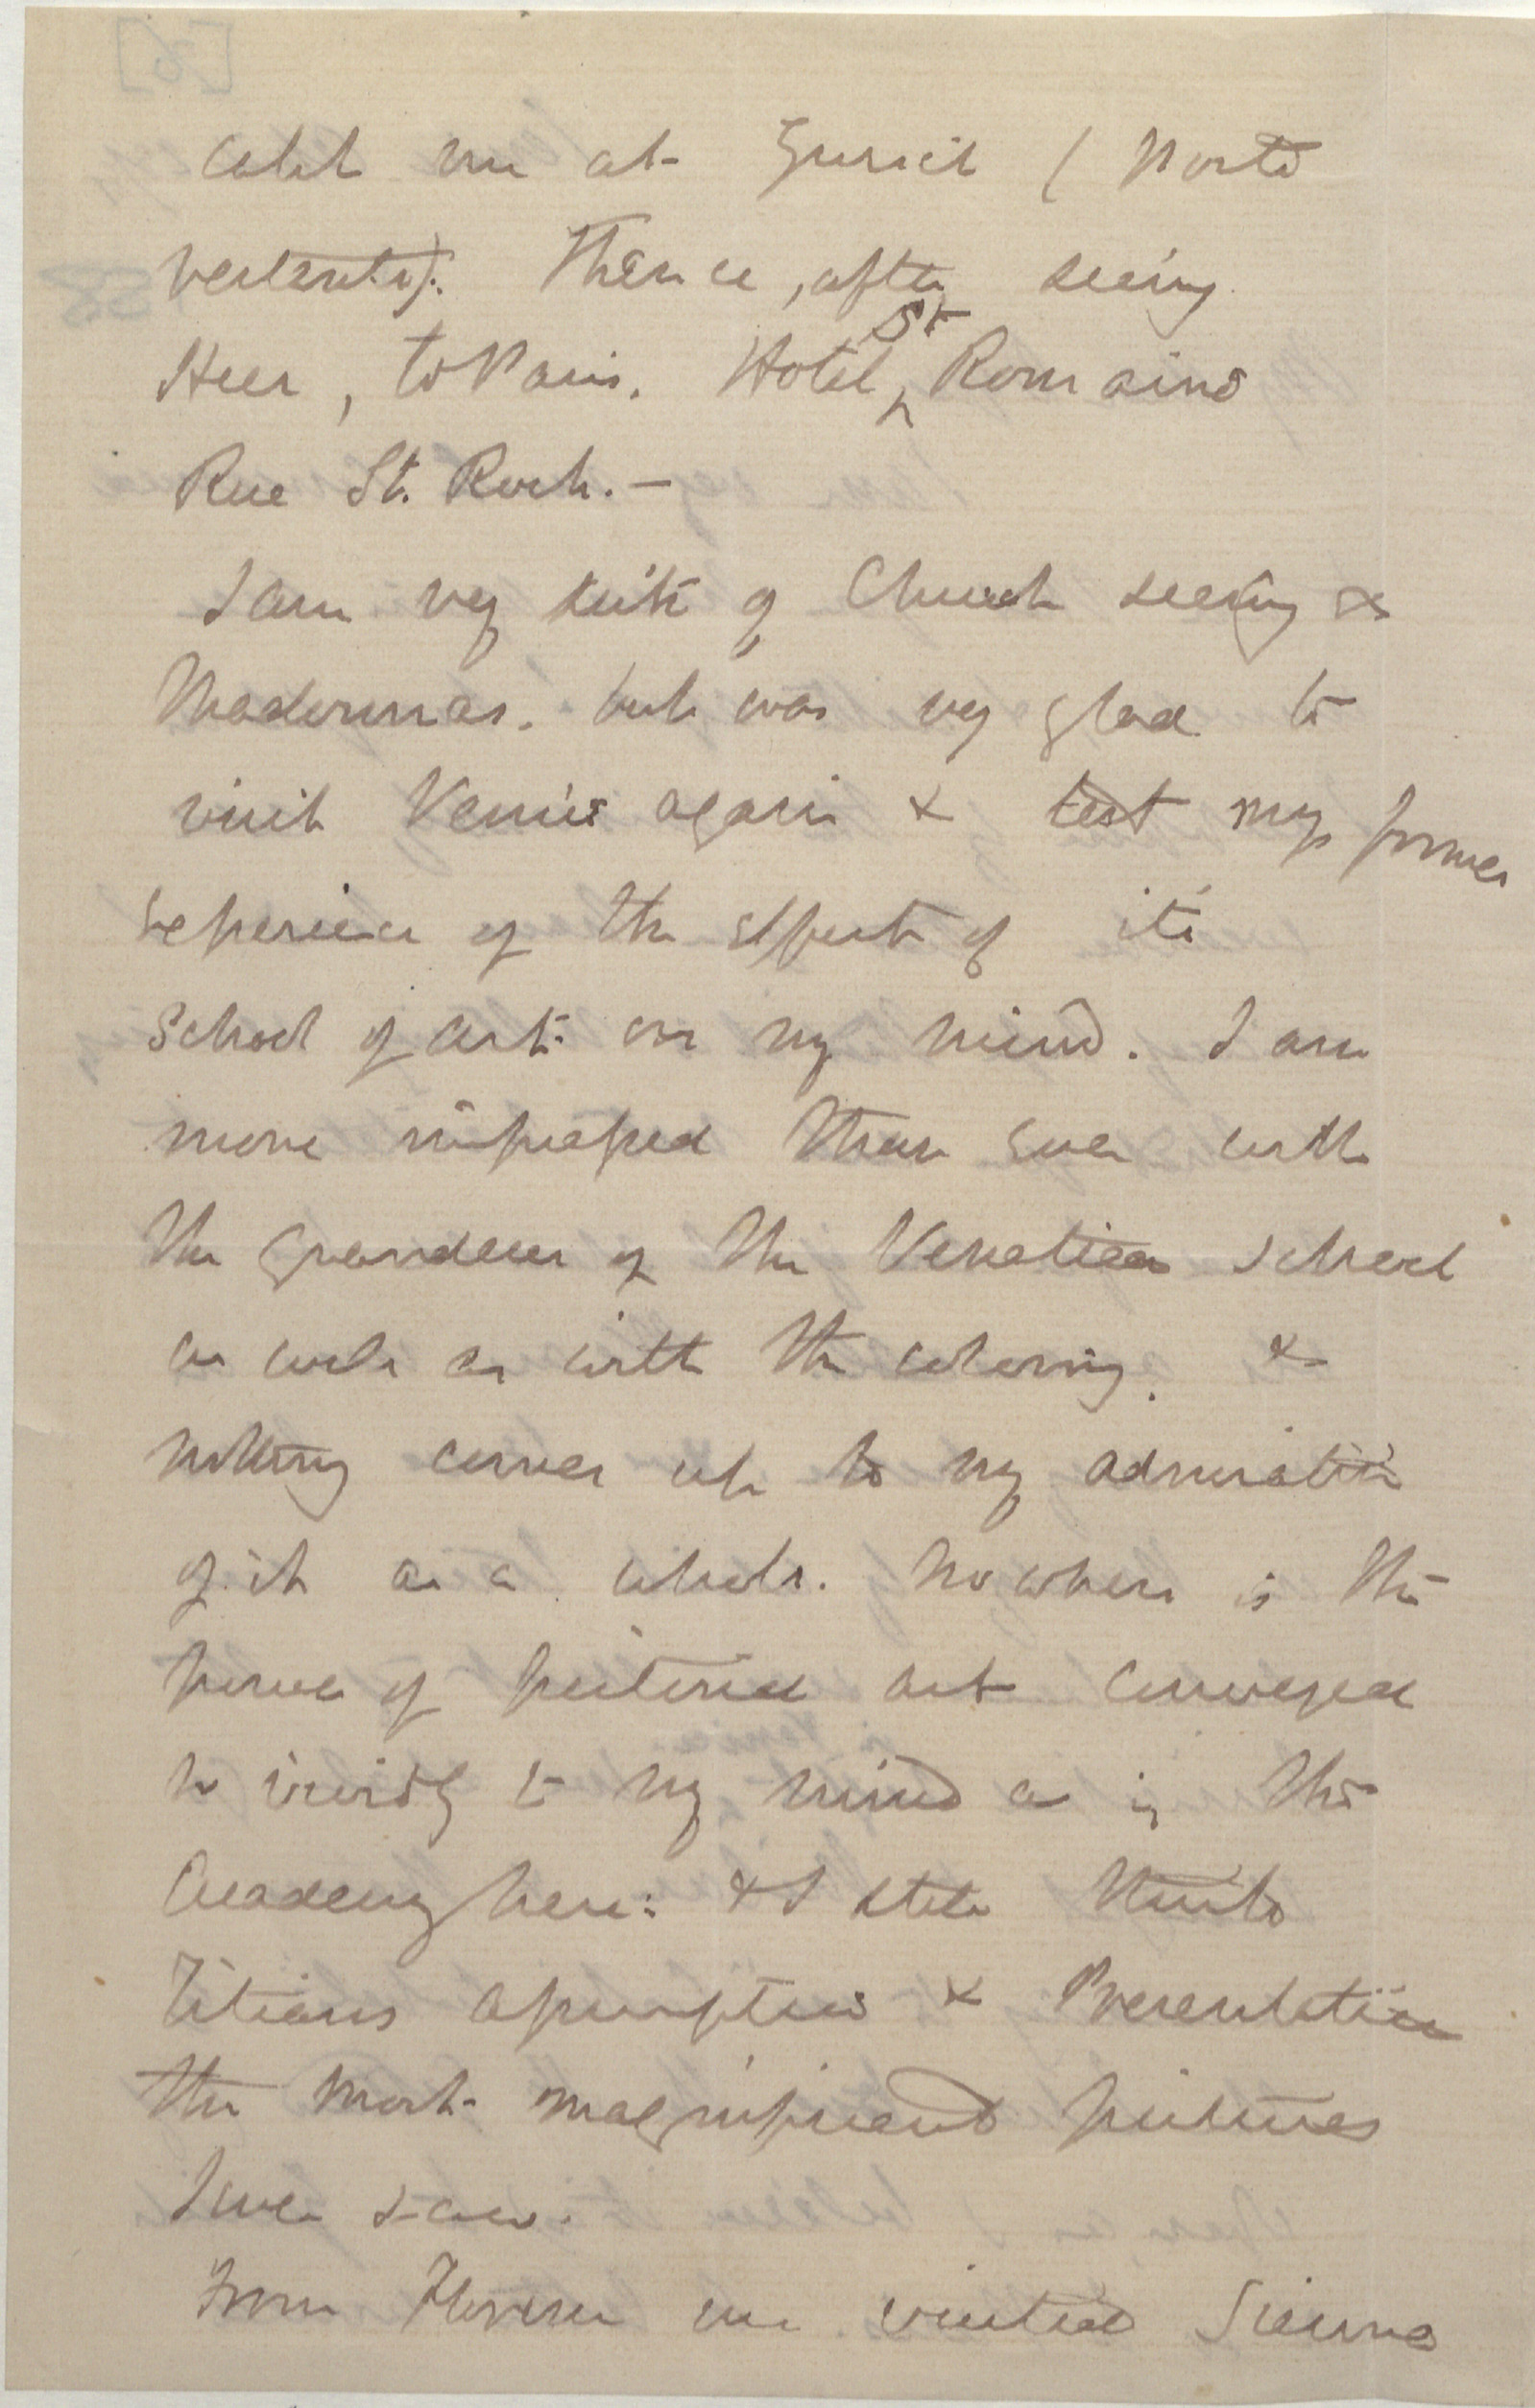 catch me at Zurich (Poste
restante). Thence, after seeing
Heer, to Paris. Hotel St Romains
Rue St. Roch. —
I am very sick of Church seeing &
Madonnas. but was very glad to
visit Venice again & test my former
experience of the effect of its
School of art on my mind. I am
more impressed than ever with
the grandeur of the Venetian School
as well as with the coloring. &
nothing comes up to my admiration
of it as a whole. No where is the
power of pictorial art conveyed
so vividly to my mind as in the
Academy here: & I still think
Titians Assumption & Presentation
the most magnificent pictures
I ever saw.
From Florence we visited Sienna